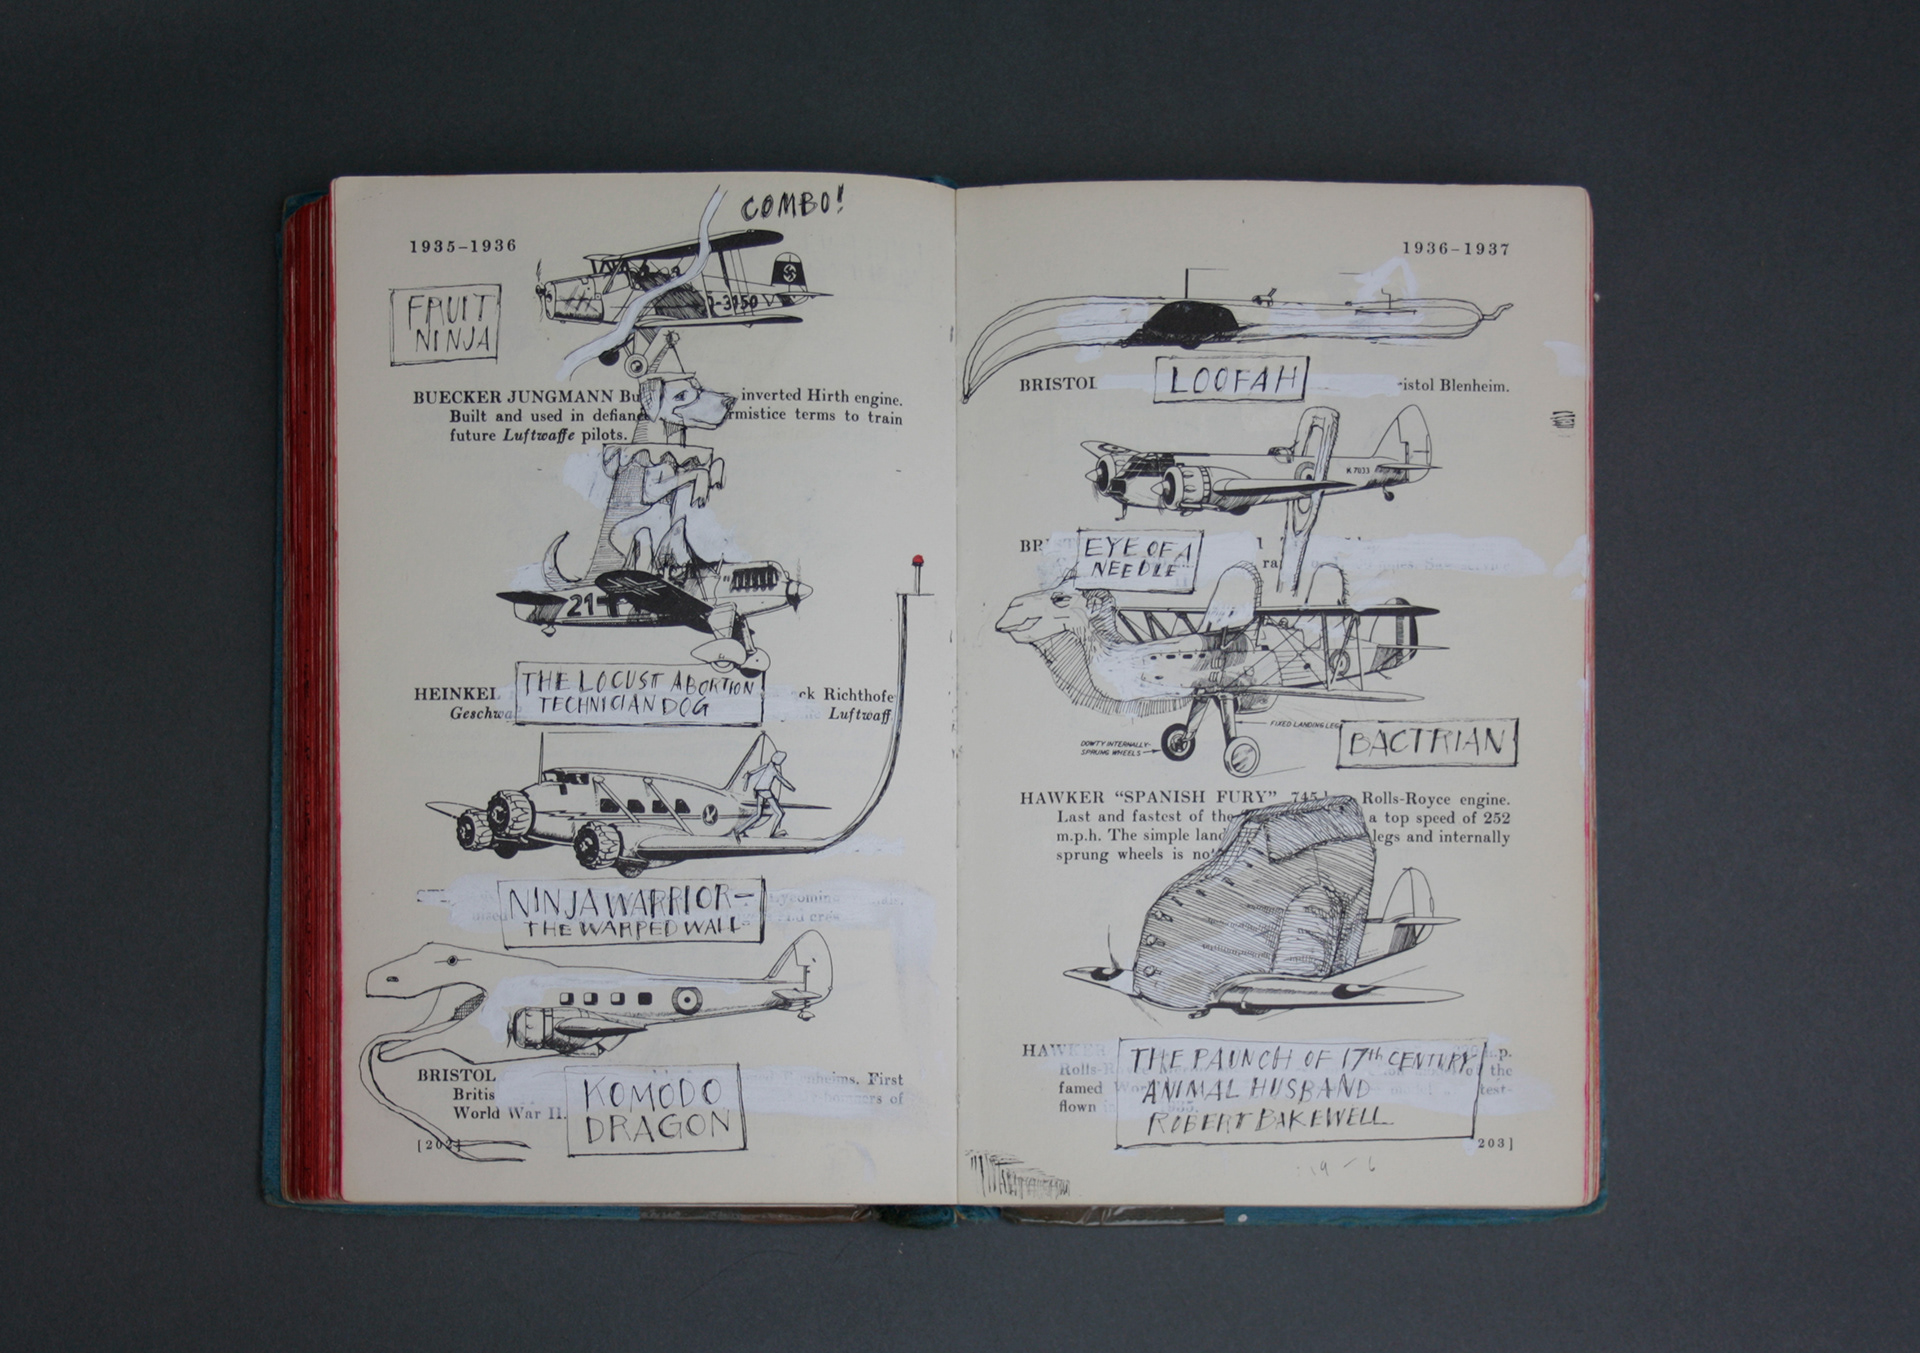 COMBO!
1935–1936
FRUIT
NINJA
J-3150
BUECKER JUNGMANN Bu inverted Hirth engine.
Built and used in defiance rmistice terms to train
future Luftwaffe pilots.
21
THE LOCUST ABORTION
TECHNICIAN DOG
HEINKEL ck Richthofe
Geschwa Luftwaff
NINJA WARRIOR–
THE WARPED WALL
KOMODO
DRAGON
BRISTOL enheims. First
Britis bombers of
World War II.
[202]
1936–1937
LOOFAH
BRISTOL istol Blenheim.
K 7033
EYE OF A
NEEDLE
BR ra
FIXED LANDING LEG
DOWTY INTERNALLY-
SPRUNG WHEELS
BACTRIAN
HAWKER "SPANISH FURY" 745 Rolls-Royce engine.
Last and fastest of the a top speed of 252
m.p.h. The simple land legs and internally
sprung wheels is not
THE PAUNCH OF 17th CENTURY
ANIMAL HUSBAND
ROBERT BAKEWELL
HAWKER m.p.
Rolls-R of the
famed Wor test-
flown in
203]